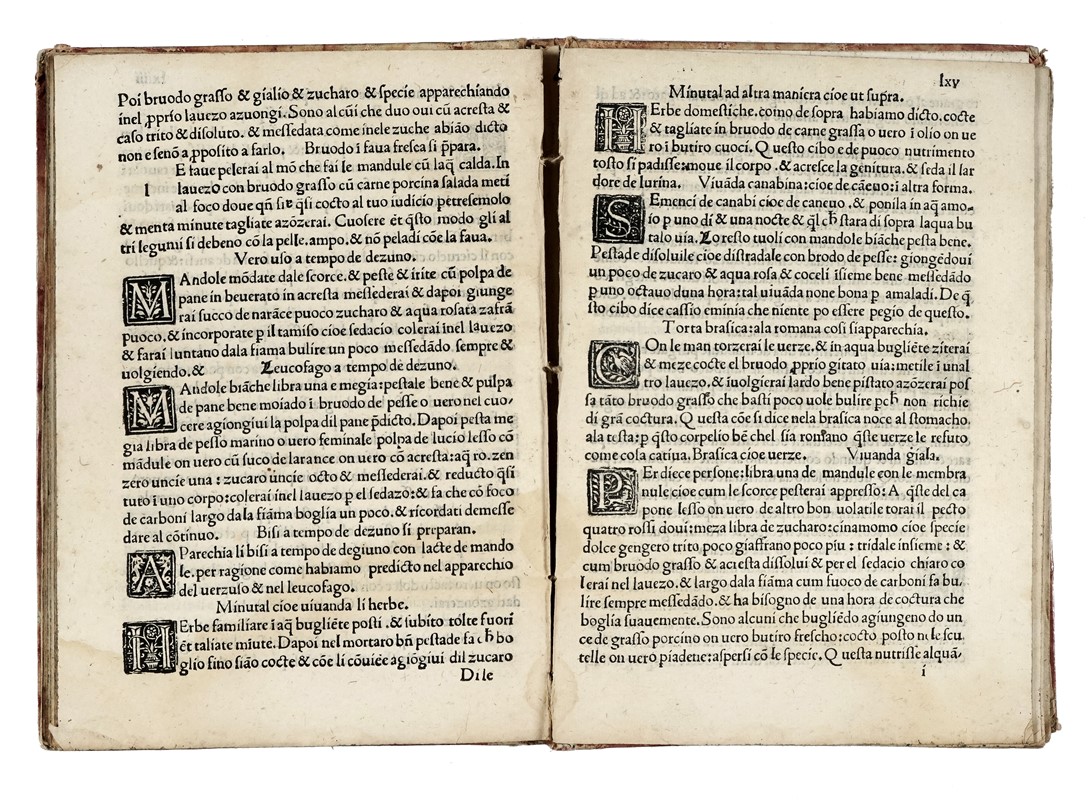 Poi bruodo grasso & gialio & zucharo & specie apparechiando
inel ꝓprio lauezo azuongi. Sono alcũi che duo oui cũ acresta &
caso trito & disoluto. & messedata come inele zuche abião dicto
non e senõ a ꝓposito a farlo. Bruodo i faua fresca si p̃para.
E faue pelerai al mõ che fai le mandule cũ laq̃ calda. In
l lauezo con bruodo grasso cũ carne porcina salada meti
al foco doue qñ cocto al tuo iudicio petresemolo
& menta minute tagliate azõzerai. Cuosere et q̃sto modo gli al
tri legumi si debeno cõ la pelle. ampo. & nõ peladi cõe la faua.
Vero uso a tempo de dezuno.
MAndole mõdate dale scorce. & peste & trite cũ polpa de
pane in beuerato in acresta messederai & dapoi giunge
rai succo de narãce puoco zucharo & aqua rosata zafrã
puoco. & incorporate p il tamiso cioe sedacio colerai inel lauezo
& farai luntano dala fiama bulire un poco messedãdo sempre &
uolgiendo. & Leucofago a tempo de dezuno.
MAndole biãche libra una e megia: pestale bene & pulpa
de pane bene moiado i bruodo de pesse o uero nel cuo,
cere agiongiui la polpa dil pane p̃dicto. Dapoi pesta me
gia libra de pesso marino o uero feminale polpa de lucio lesso cõ
mãdule on uero cũ suco de larance on uero cõ acresta: aq̃ ro. zen
zero uncie una: zucaro uncie octo & messederai. & reducto q̃si
tuto i uno corpo: colerai inel lauezo p el sedazo: & fa che cõ foco
de carboni largo dala fiãma boglia un poco. & ricordati demesse
dare al cõtinuo. Bisi a tempo de dezuno si preparan.
AParechia li bisi a tempo de degiuno con lacte de mando
le. per ragione come habiamo predicto nel apparechio
del uerzuso & nel leucofago.
Minutal cioe uiuanda li herbe.
HErbe familiare i aq̃ bugliẽte posti. & subito tolte fuori
ẽt taliate miute. Dapoi nel mortaro bñ pestade fa cħ bo
glio fino sião cocte & cõe li cõuiẽe agiõgiui dil zucaro
Dile
lxv
Minutal ad altra maniera cioe ut supra.
HErbe domestiche. como de sopra habiamo dicto. cocte
& tagliate in bruodo de carne grassa o uero i olio on ue
ro i butiro cuoci. Questo cibo e de puoco nutrimento
tosto si padisse: moue il corpo. & acresce la genitura. & seda il lar
dore de lurina. Viuãda canabina: cioe de cãeuo: i altra forma.
SEmenci de canabi cioe de caneuo. & ponila in aq̃ amo-
io p uno di & una nocte & q̃l cħ stara di sopra laqua bu
talo uia. Lo resto tuoli con mandole biãche pesta bene.
Pestade disoluile cioe distradale con brodo de pesse: giongedoui
un poco de zucaro & aqua rosa & coceli isieme bene messedãdo
p uno octauo duna hora: tal uiuãda none bona p amaladi. De q̃
sto cibo dice cassio eminia che niente po essere pegio de questo.
Torta brasica: ala romana cosi si apparechia.
COn le man torzerai le uerze. & in aqua bugliẽte ziterai
& meze cocte el bruodo ꝓprio gitato uia: metile i unal
tro lauezo. & iuolgierai lardo bene pistato azõzerai pos
sa tãto bruodo grasso che basti poco uole bulire pcħ non richie
di grã coctura. Questa cõe si dice nela brasica noce al stomacho.
ala testa: p q̃sto corpelio bẽ chel sia romano q̃ste uerze le refuto
come cola catiua. Brasica cioe uerze. Viuanda giala.
PEr diece persone: libra una de mandule con le membra
nule cioe cum le scorce pesterai appresso: A q̃ste del ca
pone lesso on uero de altro bon uolatile torai il pecto
quatro rossi doui: meza libra de zucharo: cinamomo cioe specie
dolce gengero trito poco giaffrano poco piu: tridale insieme: &
cum bruodo grasso & acresta dissolui & per el sedacio chiaro co
lerai nel lauezo. & largo dala fiãma cum fuoco de carboni fa bu,
lire sempre messedãdo. & ha bisogno de una hora de coctura che
boglia suauemente. Sono alcuni che bugliẽdo agiungeno do un
ce de grasso porcino on uero butiro frescho: cocto posto nele scu,
telle on uero piadene: aspersi cõ le specie. Questa nutrisse alquã,
i